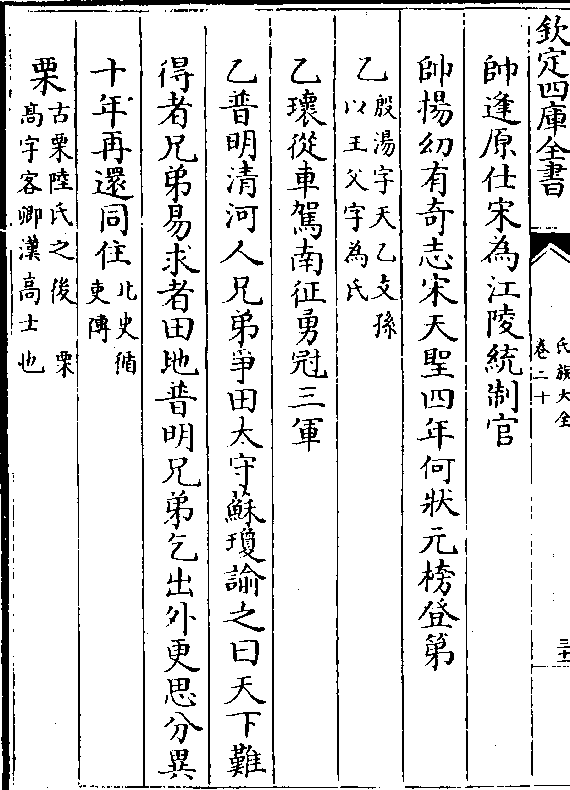 欽定四庫全書
氏族大全
卷二十
三十一
帥逢原仕宋為江陵統制官
帥楊幻有奇志宋天聖四年何狀元榜登第
乙殷湯字天乙支孫以王父字為氏
乙瓌從車駕南征勇冠三軍
乙普明清河人兄弟爭田太守蘇瓊諭之曰天下難
得者兄弟易求者田地普明兄弟乞出外更思分異
十年再還同住北史循吏傳
栗古栗陸氏之後 栗高字客卿漢高士也